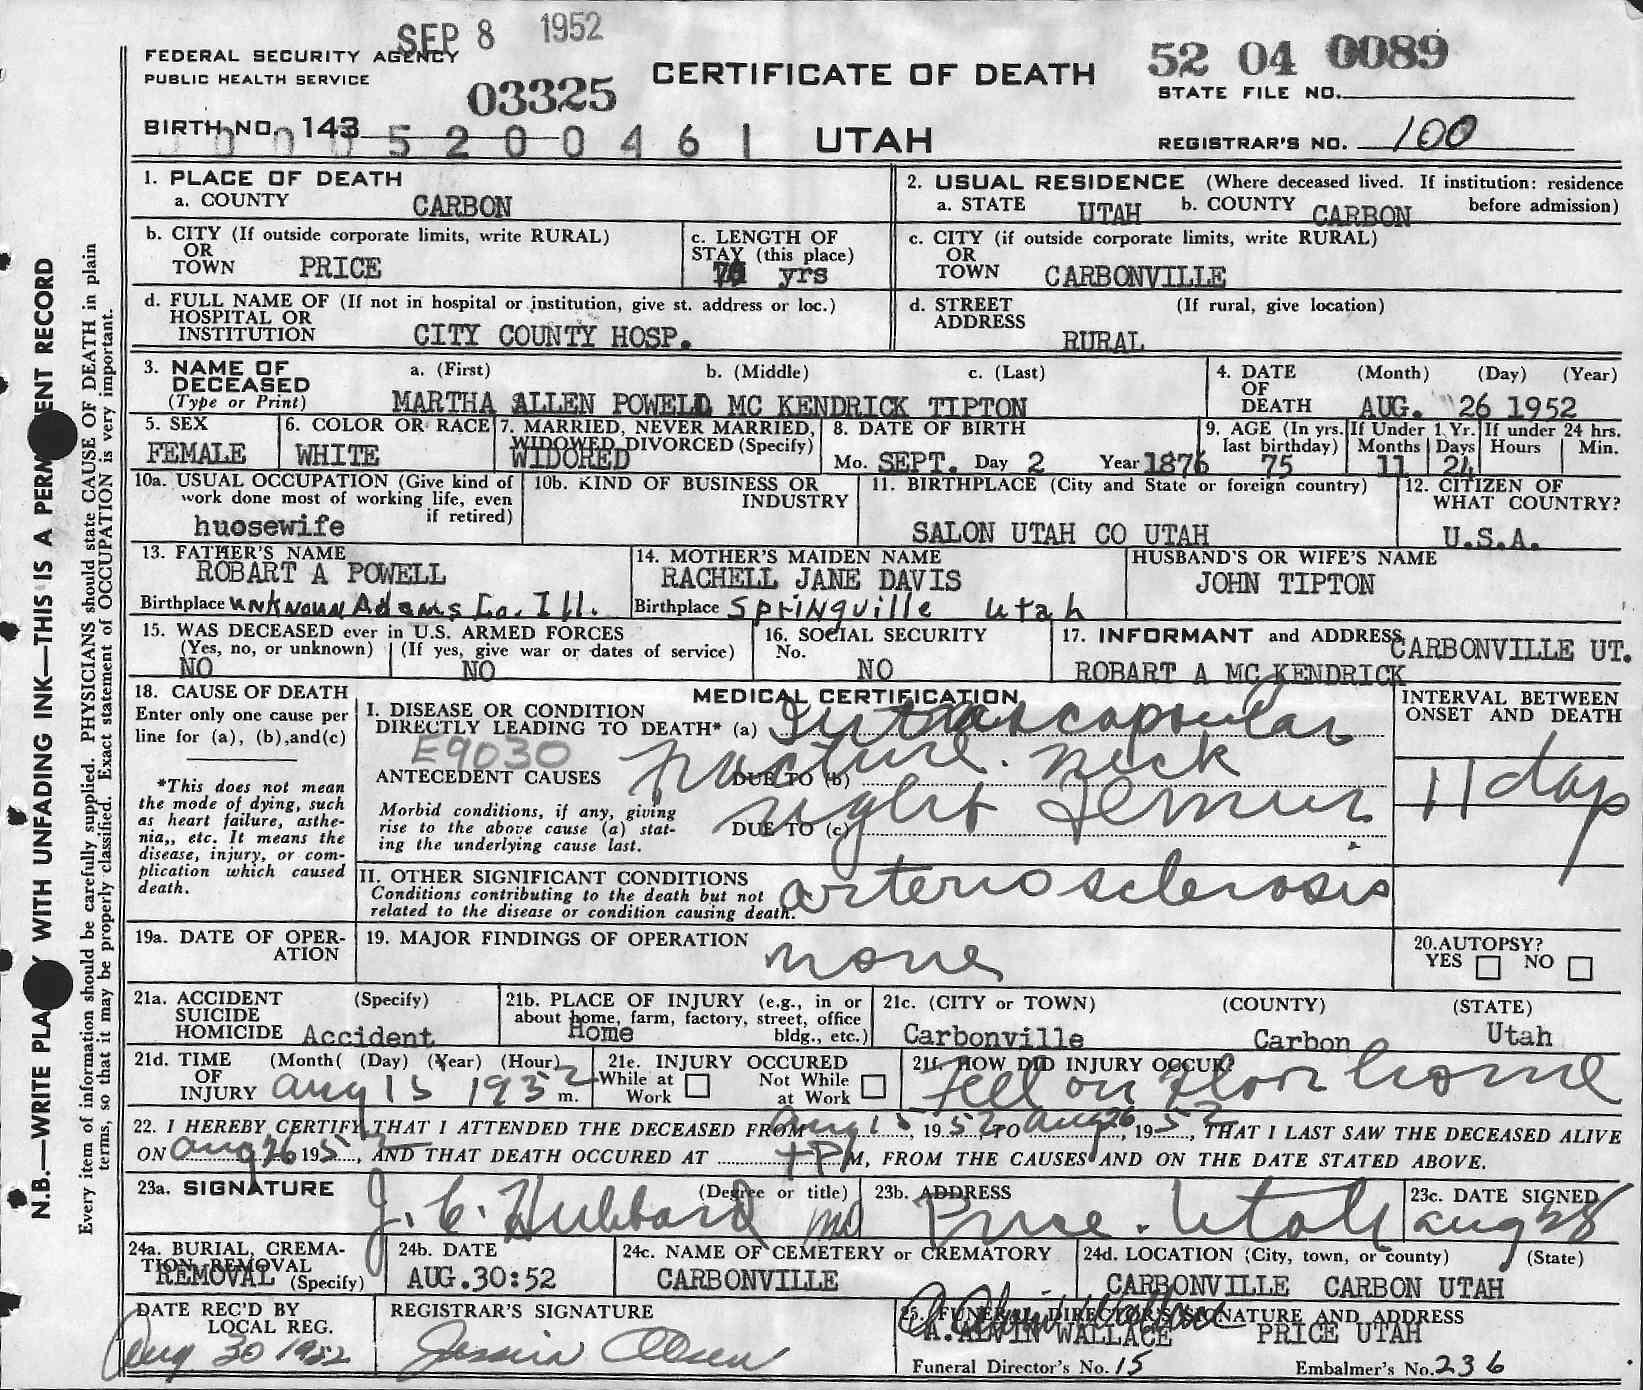 SEP 8 1952
FEDERAL SECURITY AGENCY
PUBLIC HEALTH SERVICE
03325
CERTIFICATE OF DEATH
52 04 0089
STATE FILE NO.
BIRTH NO. 143
5200461
UTAH
REGISTRAR'S NO. 100
1. PLACE OF DEATH
a. COUNTY CARBON
2. USUAL RESIDENCE (Where deceased lived. If institution: residence before admission)
a. STATE UTAH b. COUNTY CARBON
b. CITY (If outside corporate limits, write RURAL)
OR
TOWN PRICE
c. LENGTH OF
STAY (this place)
yrs
c. CITY (if outside corporate limits, write RURAL)
OR
TOWN CARBONVILLE
d. FULL NAME OF (If not in hospital or institution, give st. address or loc.)
HOSPITAL OR
INSTITUTION CITY COUNTY HOSP.
d. STREET (If rural, give location)
ADDRESS
RURAL
3. NAME OF a. (First) b. (Middle) c. (Last)
DECEASED
(Type or Print) MARTHA ALLEN POWELL MC KENDRICK TIPTON
4. DATE (Month) (Day) (Year)
OF
DEATH AUG. 26 1952
5. SEX
FEMALE
6. COLOR OR RACE
WHITE
7. MARRIED, NEVER MARRIED,
WIDOWED, DIVORCED (Specify)
WIDORED
8. DATE OF BIRTH
Mo. SEPT. Day 2 Year 1876
9. AGE (In yrs. last birthday) 75
If Under 1 Yr. Months 11 Days 24
If under 24 hrs. Hours Min.
10a. USUAL OCCUPATION (Give kind of
work done most of working life, even
if retired)
huosewife
10b. KIND OF BUSINESS OR
INDUSTRY
11. BIRTHPLACE (City and State or foreign country)
SALON UTAH CO UTAH
12. CITIZEN OF
WHAT COUNTRY?
U.S.A.
13. FATHER'S NAME
ROBART A POWELL
Birthplace unknown Adams Co. Ill.
14. MOTHER'S MAIDEN NAME
RACHELL JANE DAVIS
Birthplace Springville Utah
HUSBAND'S OR WIFE'S NAME
JOHN TIPTON
15. WAS DECEASED ever in U.S. ARMED FORCES
(Yes, no, or unknown) (If yes, give war or dates of service)
NO NO
16. SOCIAL SECURITY
No.
NO
17. INFORMANT and ADDRESS CARBONVILLE UT.
ROBART A MC KENDRICK
18. CAUSE OF DEATH
Enter only one cause per
line for (a), (b),and(c)
*This does not mean
the mode of dying, such
as heart failure, asthe-
nia,, etc. It means the
disease, injury, or com-
plication which caused
death.
MEDICAL CERTIFICATION
I. DISEASE OR CONDITION
DIRECTLY LEADING TO DEATH* (a) Intracapsular
E9030
ANTECEDENT CAUSES DUE TO (b) fracture. neck
Morbid conditions, if any, giving
rise to the above cause (a) stat-
ing the underlying cause last.
DUE TO (c) right Femur
INTERVAL BETWEEN
ONSET AND DEATH
11 days
II. OTHER SIGNIFICANT CONDITIONS
Conditions contributing to the death but not
related to the disease or condition causing death.
arteriosclerosis
19a. DATE OF OPER-
ATION
19. MAJOR FINDINGS OF OPERATION
none
20.AUTOPSY?
YES NO
21a. ACCIDENT (Specify)
SUICIDE
HOMICIDE Accident
21b. PLACE OF INJURY (e.g., in or
about home, farm, factory, street, office
bldg., etc.)
Home
21c. (CITY or TOWN) (COUNTY) (STATE)
Carbonville Carbon Utah
21d. TIME (Month( (Day) (Year) (Hour)
OF
INJURY Aug 15 1952 m.
21e. INJURY OCCURED
While at Work Not While at Work
21f. HOW DID INJURY OCCUR?
Fell on floor home
22. I HEREBY CERTIFY THAT I ATTENDED THE DECEASED FROM Aug 15, 1952 TO Aug 26, 1952, THAT I LAST SAW THE DECEASED ALIVE
ON Aug 26 1952, AND THAT DEATH OCCURED AT PM, FROM THE CAUSES AND ON THE DATE STATED ABOVE.
23a. SIGNATURE (Degree or title)
J. C. Hubbard MD
23b. ADDRESS
Price. Utah
23c. DATE SIGNED
Aug 28
24a. BURIAL, CREMA-
TION REMOVAL
REMOVAL (Specify)
24b. DATE
AUG.30:52
24c. NAME OF CEMETERY or CREMATORY
CARBONVILLE
24d. LOCATION (City, town, or county) (State)
CARBONVILLE CARBON UTAH
DATE REC'D BY
LOCAL REG.
Aug 30 1952
REGISTRAR'S SIGNATURE
Jessie Olsen
25. FUNERAL DIRECTOR'S SIGNATURE AND ADDRESS
A. ALVIN WALLACE PRICE UTAH
Funeral Director's No. 15 Embalmer's No. 236
N.B.—WRITE WITH UNFADING INK—THIS IS A RECORD
Every item of information should be carefully supplied. PHYSICIANS should state CAUSE OF DEATH in plain
terms, so that it may be properly classified. Exact statement of OCCUPATION is very important.